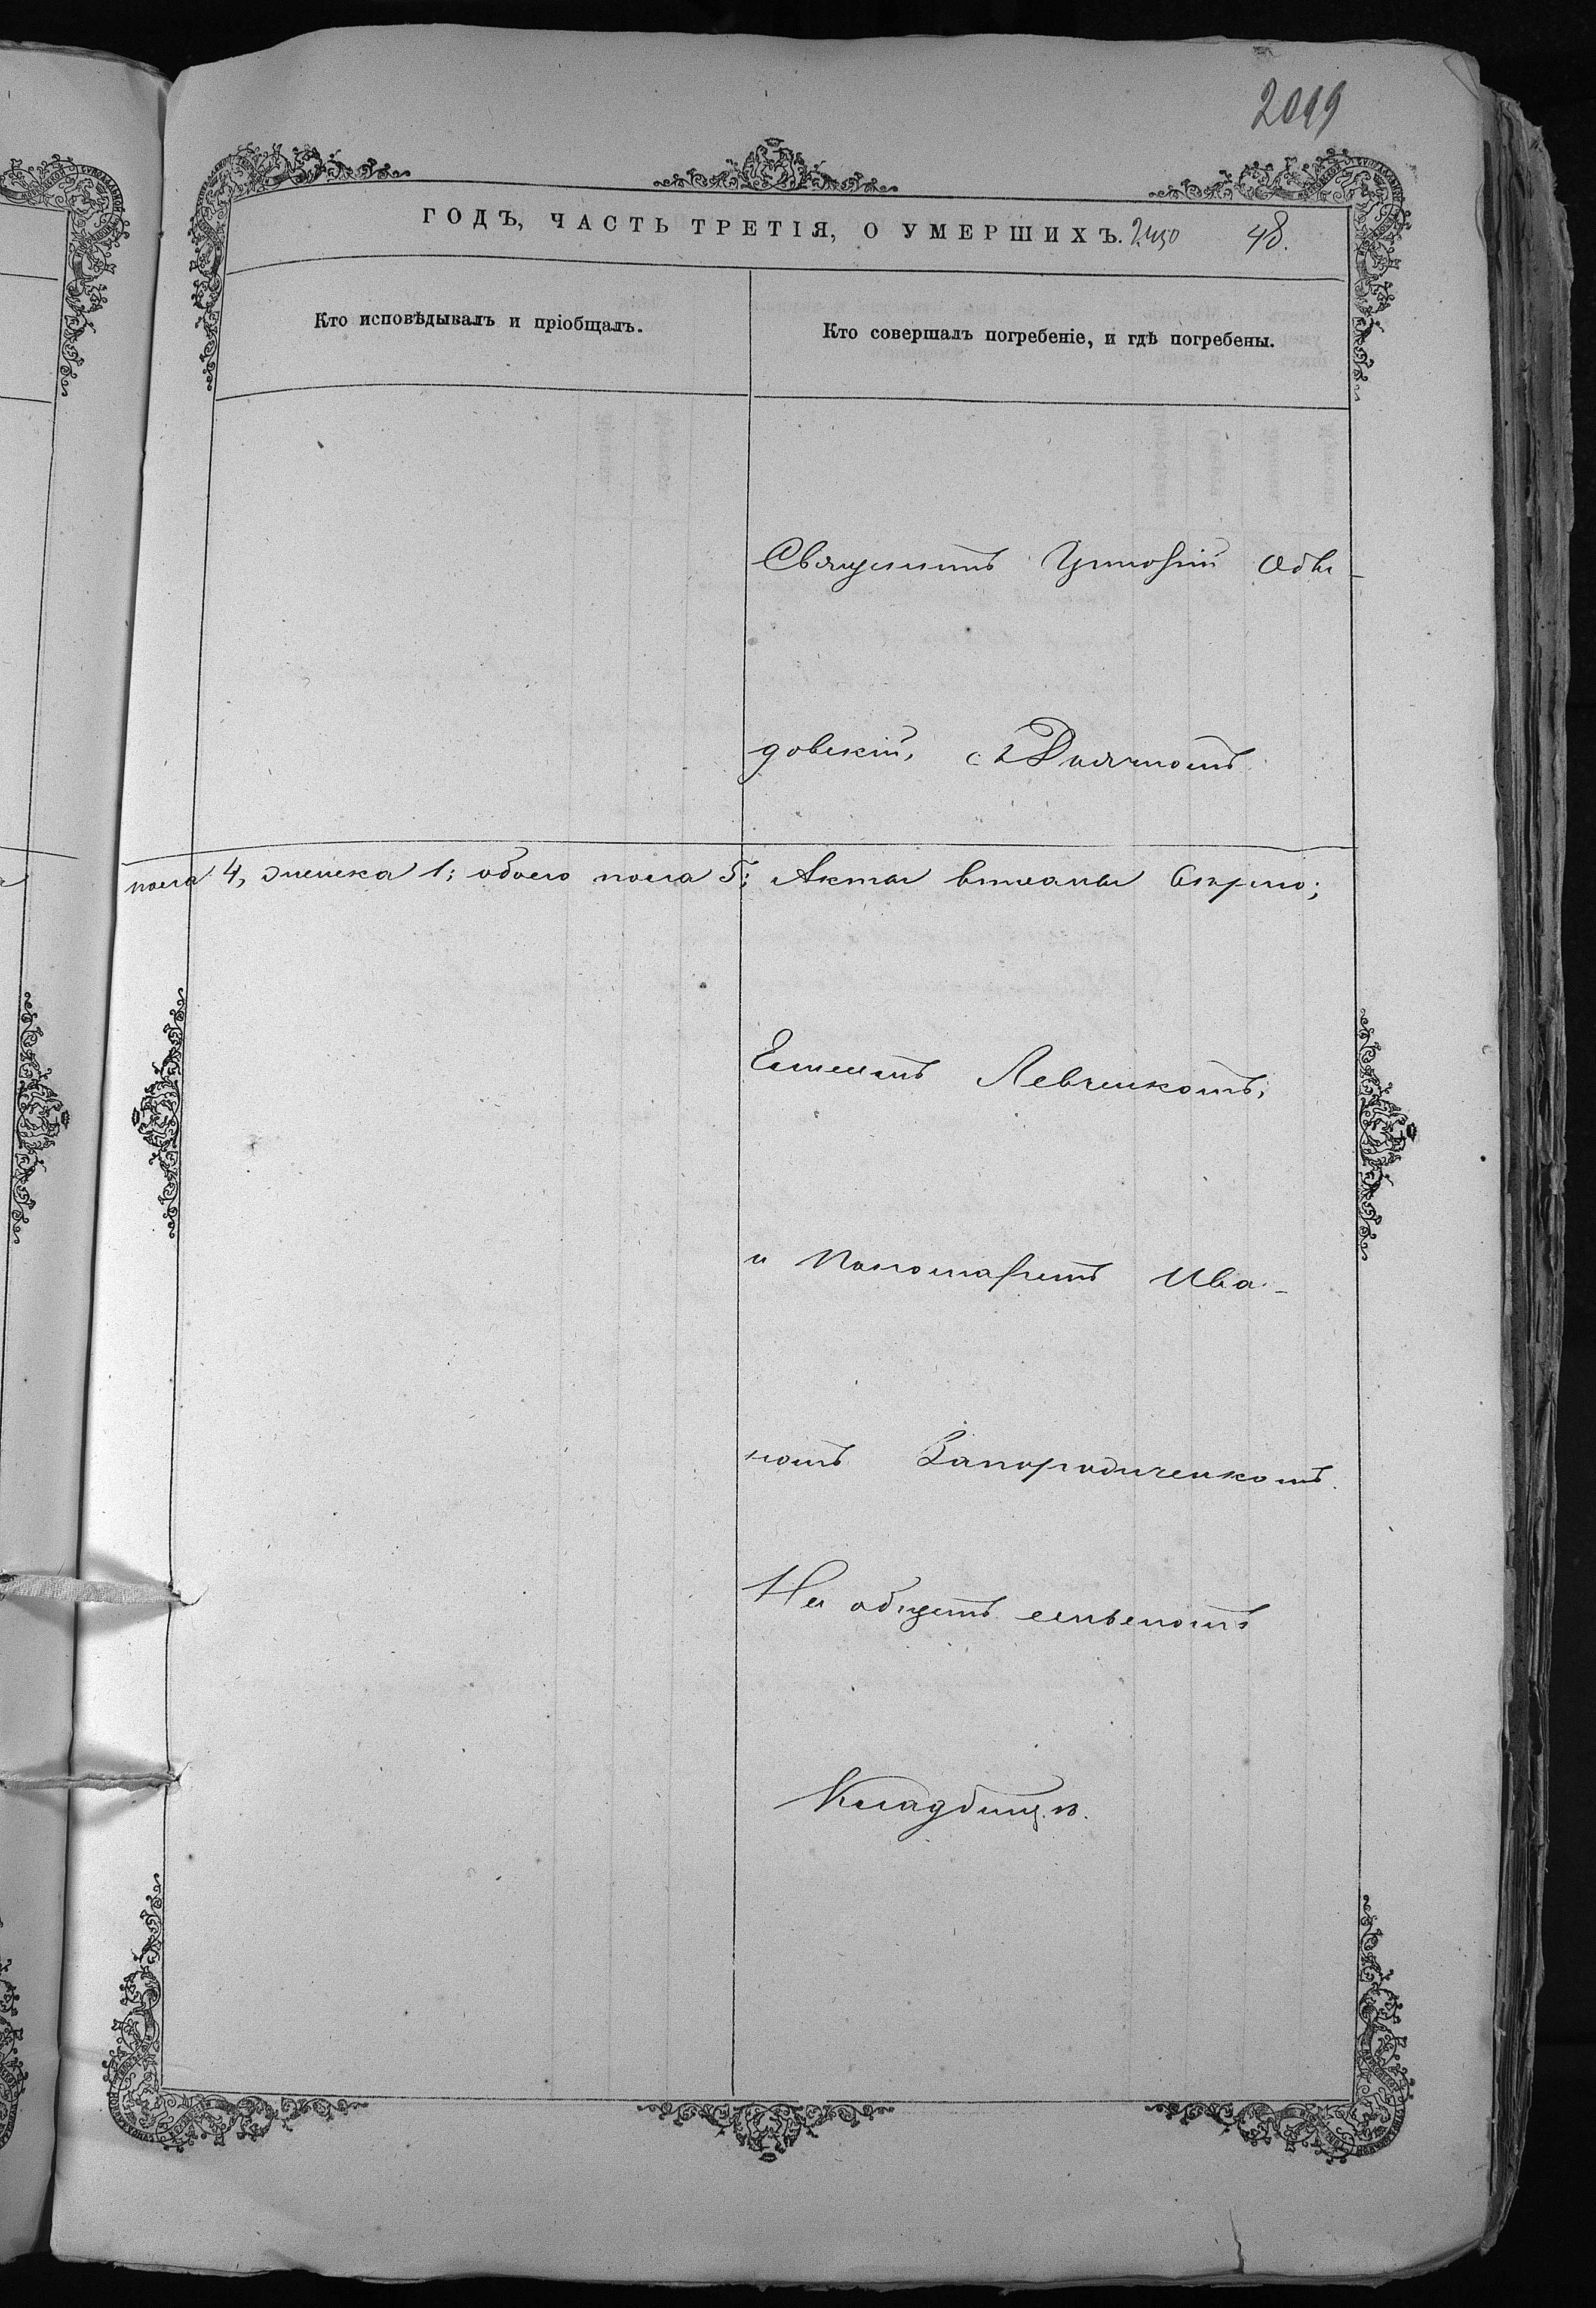 2099
ГОДЪ, ЧАСТЬ ТРЕТІЯ, О УМЕРШИХЪ. 48.
Кто исповѣдывалъ и пріобщалъ.
Кто совершалъ погребеніе, и гдѣ погребены.
Священникъ Григорій Обѣ-
довскій, съ Дьячкомъ
пола 4, женска 1; обоего пола 5; Акты вписаны вѣрно;
Левченкомъ,
и Пономаремъ Ива-
номъ Запородченкомъ.
На общемъ сельскомъ
Кладбищѣ.